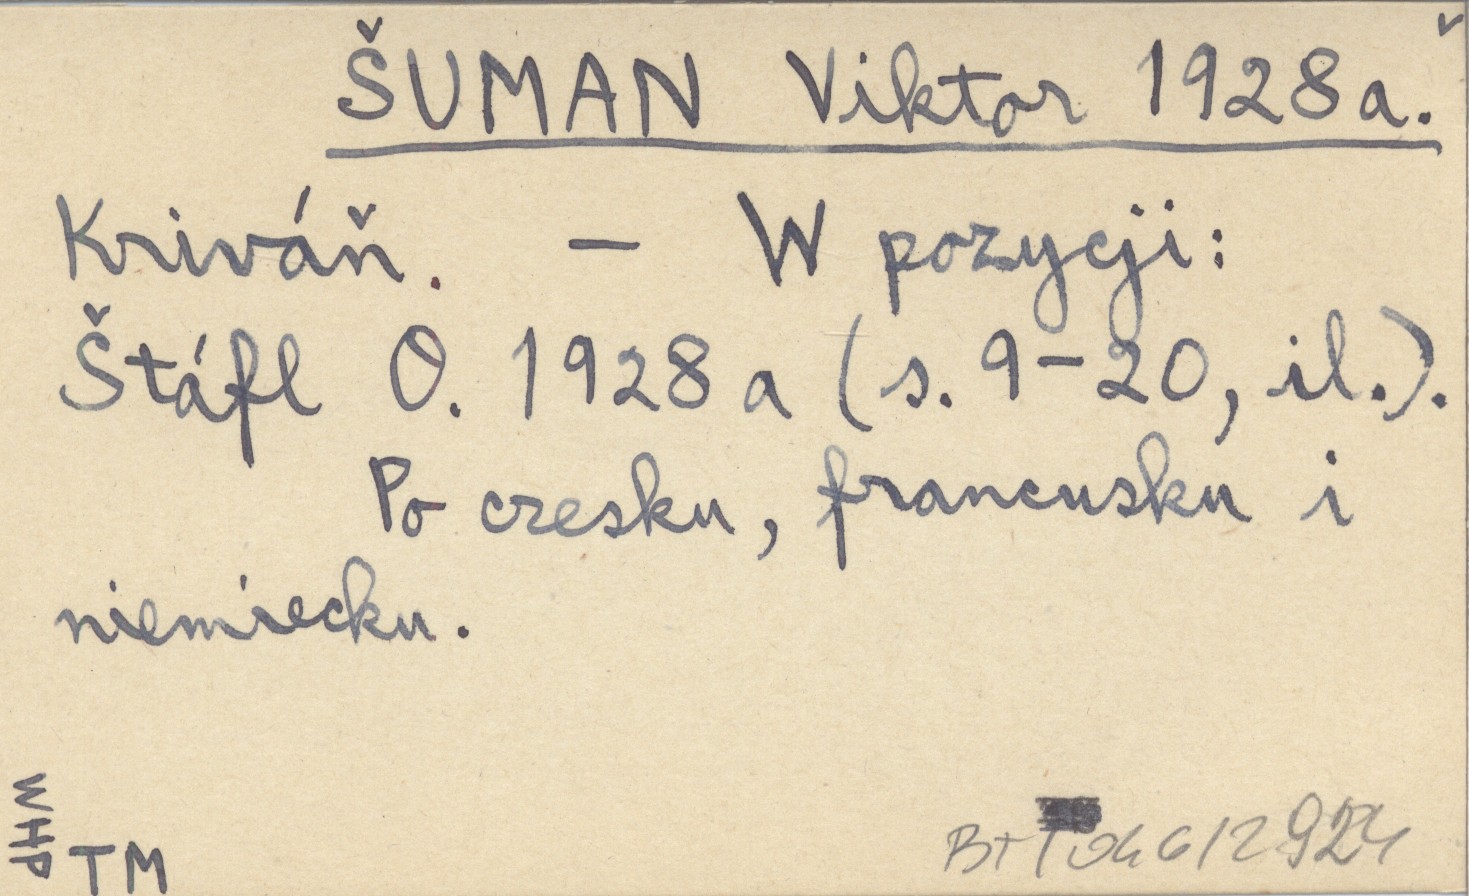 ŠUMAN Viktor 1928a.
Kriváň. — W pozycji:
Štáfl O. 1928a (s. 9–20, il.).
Po czesku, francusku i
niemiecku.
WHP
TM